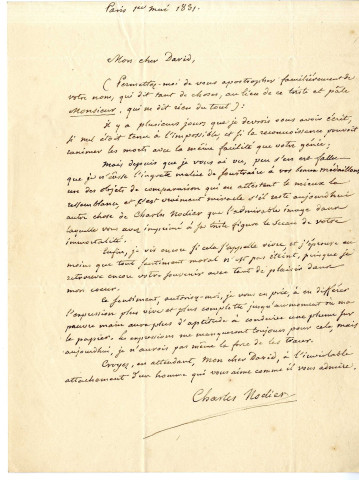 Paris 1er mai 1831.
Mon cher David,
(Permettez-moi de vous apostropher familièrement de
votre nom, qui dit tant de choses, au lieu de ce triste et pâle
Monsieur, qui ne dit rien du tout):
Il y a plusieurs jours que je devrois vous avoir écrit,
si nul n'étoit tenu à l'impossible, et si la reconnoissance pouvoit
ranimer les morts avec la même facilité que votre génie;
mais depuis que je vous ai vu, peu s'en est fallu
que je n'eusse l'ingrate malice de soustraire à vos beaux médaillons
un des objets de comparaison qui en attestent le mieux la
ressemblance, et c'est vraiment miracle s'il est aujourd'hui
autre chose de Charles Nodier que l'admirable image dans
laquelle vous avez imprimé à sa triste figure le sceau de votre
immortalité.
Enfin, je vis encore si cela s'appelle vivre, et j'éprouve au
moins que tout sentiment moral n'est pas éteint, puisque je
retrouve encore votre souvenir avec tant de plaisir dans
mon cœur.
Ce sentiment, autorisez-moi, je vous en prie, à en différer
l'expression plus vive et plus complette jusqu'au moment où ma
pauvre main aura plus d'aptitude à conduire une plume sur
le papier. Les expressions me manqueront toujours pour cela, mais
aujourd'hui, je n'aurois pas même la force de les tracer.
Croyez, en attendant, mon cher David, à l'inviolable
attachement d'un homme qui vous aime comme il vous admire.
Charles Nodier